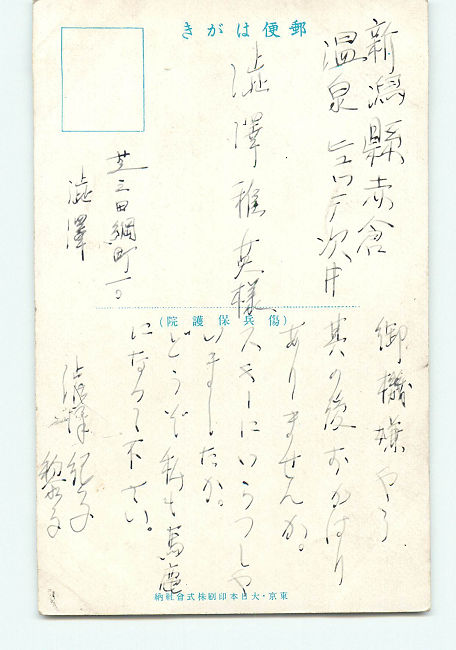 郵便はがき
新潟縣赤倉
温泉
澁澤雅英様
芝三田綱町一〇
澁澤
(傷兵保護院)
御機嫌やう
其の後おかはり
ありませんか。
スキーにいらつしや
いましたか。
どうぞ
になつて下さい。
澁澤紀子
東京・大日本印刷株式會社納